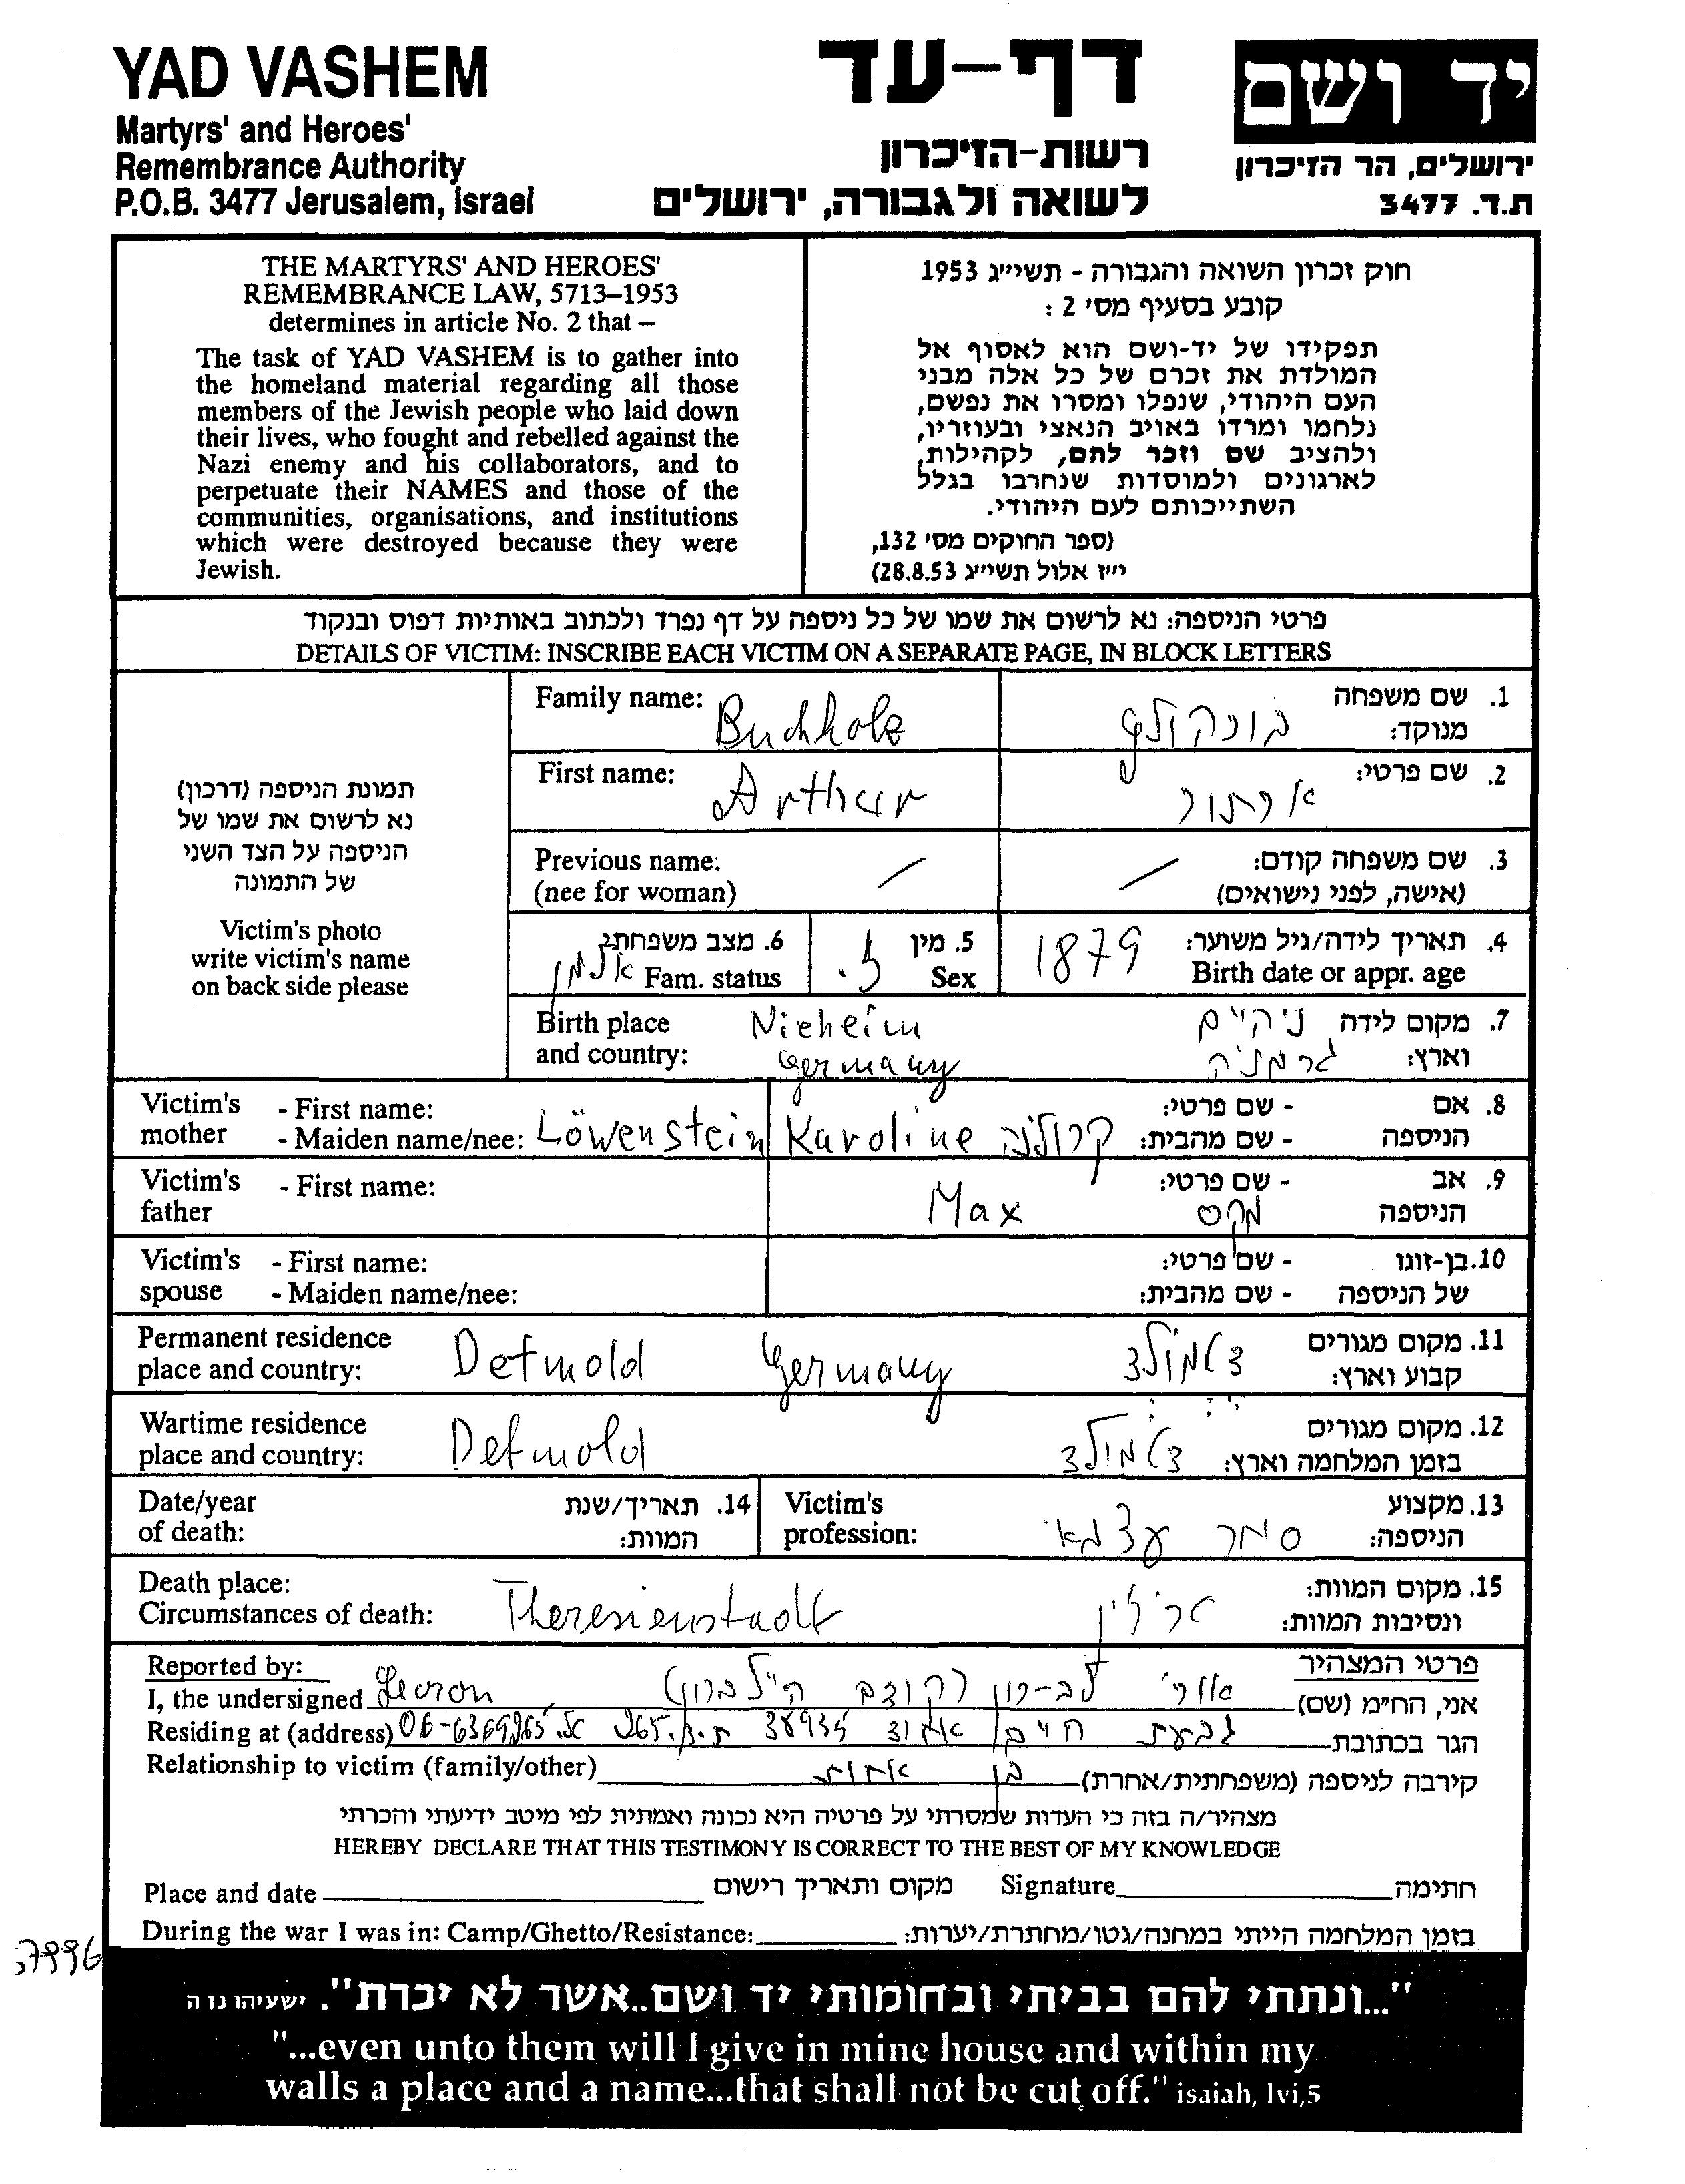 YAD VASHEM
Martyrs' and Heroes'
Remembrance Authority
P.O.B. 3477 Jerusalem, Israel
דף-עד
רשות-הזיכרון
לשואה ולגבורה, ירושלים
יד ושם
ירושלים, הר הזיכרון
ת.ד. 3477
THE MARTYRS' AND HEROES'
REMEMBRANCE LAW, 5713–1953
determines in article No. 2 that –
The task of YAD VASHEM is to gather into
the homeland material regarding all those
members of the Jewish people who laid down
their lives, who fought and rebelled against the
Nazi enemy and his collaborators, and to
perpetuate their NAMES and those of the
communities, organisations, and institutions
which were destroyed because they were
Jewish.
חוק זכרון השואה והגבורה - תשי״ג 1953
קובע בסעיף מס׳ 2 :
תפקידו של יד-ושם הוא לאסוף אל
המולדת את זכרם של כל אלה מבני
העם היהודי, שנפלו ומסרו את נפשם,
נלחמו ומרדו באויב הנאצי ובעוזריו,
ולהציב שם וזכר להם, לקהילות,
לארגונים ולמוסדות שנחרבו בגלל
השתייכותם לעם היהודי.
(ספר החוקים מס׳ 132,
י״ז אלול תשי״ג 28.8.53)
פרטי הניספה: נא לרשום את שמו של כל ניספה על דף נפרד ולכתוב באותיות דפוס ובנקוד
DETAILS OF VICTIM: INSCRIBE EACH VICTIM ON A SEPARATE PAGE, IN BLOCK LETTERS
תמונת הניספה (דרכון)
נא לרשום את שמו של
הניספה על הצד השני
של התמונה
Victim's photo
write victim's name
on back side please
Family name: Buchholz בוכהולץ 1. שם משפחה
מנוקד:
First name: Arthur ארתור 2. שם פרטי:
Previous name: / / 3. שם משפחה קודם:
(nee for woman) (אישה, לפני נישואים)
6. מצב משפחתי: אלמן Fam. status
5. מין ז. Sex
1879 4. תאריך לידה/גיל משוער:
Birth date or appr. age
Birth place Nieheim ניהיים 7. מקום לידה
and country: Germany גרמניה וארץ:
Victim's - First name: - שם פרטי: 8. אם
mother - Maiden name/nee: Löwenstein Karoline קרולינה - שם מהבית: הניספה
Victim's - First name: - שם פרטי: 9. אב
father Max מקס הניספה
Victim's - First name: - שם פרטי: 10. בן-זוגו
spouse - Maiden name/nee: - שם מהבית: של הניספה
Permanent residence Detmold Germany דטמולד 11. מקום מגורים
place and country: קבוע וארץ:
Wartime residence Detmold דטמולד 12. מקום מגורים
place and country: בזמן המלחמה וארץ:
Date/year 14. תאריך/שנת
of death: המוות:
Victim's 13. מקצוע
profession: סוחר עצמאי הניספה:
Death place: 15. מקום המוות:
Circumstances of death: Theresienstadt טרזין ונסיבות המוות:
Reported by: פרטי המצהיר
I, the undersigned Levron אורי לב-רון (קודם היילברון) אני, הח״מ (שם)
Residing at (address) 06-6369265 טל 265 ת.ד. 38935 גבעת חיים איחוד הגר בכתובת
Relationship to victim (family/other) בן אחות קירבה לניספה (משפחתית/אחרת)
מצהיר/ה בזה כי העדות שמסרתי על פרטיה היא נכונה ואמתית לפי מיטב ידיעתי והכרתי
HEREBY DECLARE THAT THIS TESTIMONY IS CORRECT TO THE BEST OF MY KNOWLEDGE
Place and date מקום ותאריך רישום Signature חתימה
During the war I was in: Camp/Ghetto/Resistance: בזמן המלחמה הייתי במחנה/גטו/מחתרת/יערות:
"...ונתתי להם בביתי ובחומותי יד ושם..אשר לא יכרת". ישעיהו נו ה
"...even unto them will I give in mine house and within my
walls a place and a name...that shall not be cut off." isaiah, lvi,5